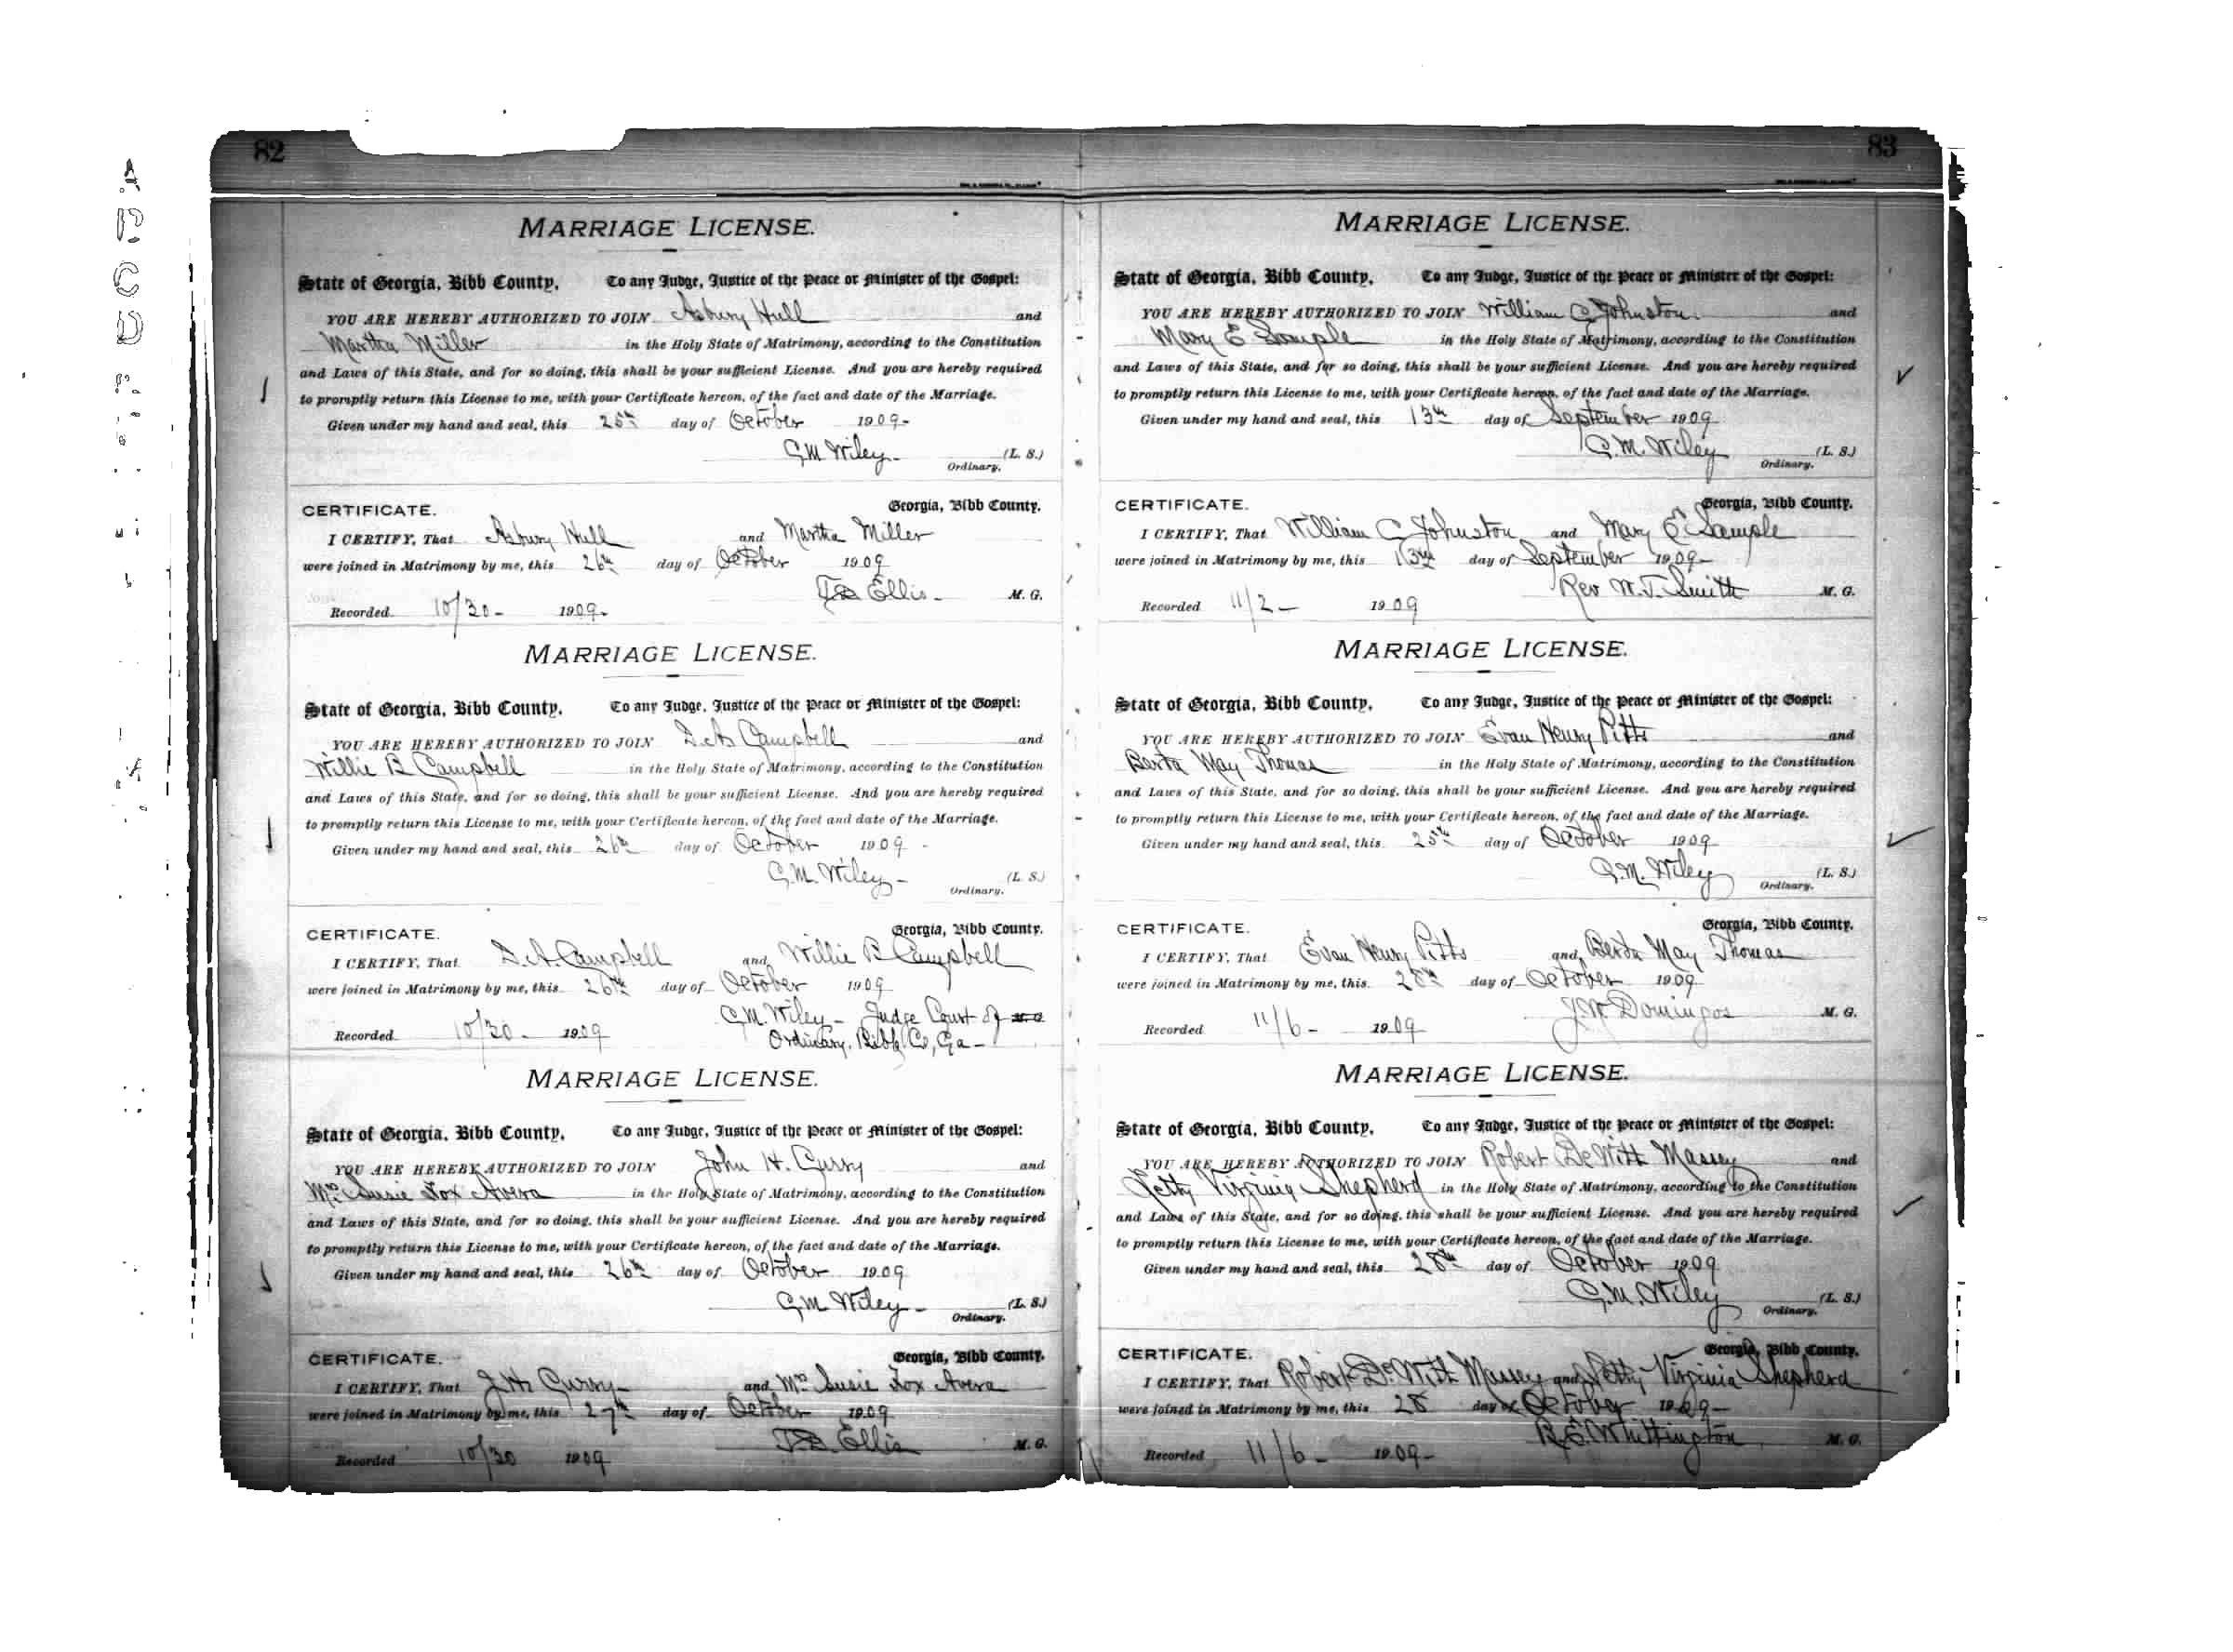 82
MARRIAGE LICENSE.
State of Georgia, Bibb County. To any Judge, Justice of the Peace or Minister of the Gospel:
YOU ARE HEREBY AUTHORIZED TO JOIN Asbury Hull and
Martha Miller in the Holy State of Matrimony, according to the Constitution
and Laws of this State, and for so doing, this shall be your sufficient License. And you are hereby required
to promptly return this License to me, with your Certificate hereon, of the fact and date of the Marriage.
Given under my hand and seal, this 25th day of October 1909
G.M. Wiley (L. S.)
Ordinary.
CERTIFICATE. Georgia, Bibb County.
I CERTIFY, That Asbury Hull and Martha Miller
were joined in Matrimony by me, this 26th day of October 1909
T.D. Ellis M. G.
Recorded 10/30 1909
MARRIAGE LICENSE.
State of Georgia, Bibb County. To any Judge, Justice of the Peace or Minister of the Gospel:
YOU ARE HEREBY AUTHORIZED TO JOIN D.A. Campbell and
Willie B Campbell in the Holy State of Matrimony, according to the Constitution
and Laws of this State, and for so doing, this shall be your sufficient License. And you are hereby required
to promptly return this License to me, with your Certificate hereon, of the fact and date of the Marriage.
Given under my hand and seal, this 26th day of October 1909
G.M. Wiley (L. S.)
Ordinary.
CERTIFICATE. Georgia, Bibb County.
I CERTIFY, That D.A. Campbell and Willie B Campbell
were joined in Matrimony by me, this 26th day of October 1909
G.M. Wiley - Judge Court of M. G.
Recorded 10/30 1909 Ordinary, Bibb Co, Ga
MARRIAGE LICENSE.
State of Georgia, Bibb County. To any Judge, Justice of the Peace or Minister of the Gospel:
YOU ARE HEREBY AUTHORIZED TO JOIN John H. Curry and
Mrs Susie Fox Avera in the Holy State of Matrimony, according to the Constitution
and Laws of this State, and for so doing, this shall be your sufficient License. And you are hereby required
to promptly return this License to me, with your Certificate hereon, of the fact and date of the Marriage.
Given under my hand and seal, this 26th day of October 1909
G.M. Wiley (L. S.)
Ordinary.
CERTIFICATE. Georgia, Bibb County.
I CERTIFY, That J.H. Curry and Mrs Susie Fox Avera
were joined in Matrimony by me, this 27th day of October 1909
T.D. Ellis M. G.
Recorded 10/30 1909
83
MARRIAGE LICENSE.
State of Georgia, Bibb County. To any Judge, Justice of the Peace or Minister of the Gospel:
YOU ARE HEREBY AUTHORIZED TO JOIN William C. Johnston and
Mary E Sample in the Holy State of Matrimony, according to the Constitution
and Laws of this State, and for so doing, this shall be your sufficient License. And you are hereby required
to promptly return this License to me, with your Certificate hereon, of the fact and date of the Marriage.
Given under my hand and seal, this 13th day of September 1909
G.M. Wiley (L. S.)
Ordinary.
CERTIFICATE. Georgia, Bibb County.
I CERTIFY, That William C. Johnston and Mary E Sample
were joined in Matrimony by me, this 13th day of September 1909
Rev W.T. Smith M. G.
Recorded 11/2 1909
MARRIAGE LICENSE.
State of Georgia, Bibb County. To any Judge, Justice of the Peace or Minister of the Gospel:
YOU ARE HEREBY AUTHORIZED TO JOIN Evan Henry Pitts and
Berta May Thomas in the Holy State of Matrimony, according to the Constitution
and Laws of this State, and for so doing, this shall be your sufficient License. And you are hereby required
to promptly return this License to me, with your Certificate hereon, of the fact and date of the Marriage.
Given under my hand and seal, this 25th day of October 1909
G.M. Wiley (L. S.)
Ordinary.
CERTIFICATE. Georgia, Bibb County.
I CERTIFY, That Evan Henry Pitts and Berta May Thomas
were joined in Matrimony by me, this 28th day of October 1909
J.W. Domingos M. G.
Recorded 11/6 1909
MARRIAGE LICENSE.
State of Georgia, Bibb County. To any Judge, Justice of the Peace or Minister of the Gospel:
YOU ARE HEREBY AUTHORIZED TO JOIN Robert DeWitt Massey and
Letty Virginia Shepherd in the Holy State of Matrimony, according to the Constitution
and Laws of this State, and for so doing, this shall be your sufficient License. And you are hereby required
to promptly return this License to me, with your Certificate hereon, of the fact and date of the Marriage.
Given under my hand and seal, this 28th day of October 1909
G.M. Wiley (L. S.)
Ordinary.
CERTIFICATE. Georgia, Bibb County.
I CERTIFY, That Robert DeWitt Massey and Letty Virginia Shepherd
were joined in Matrimony by me, this 28 day of October 1909
R.E. Whittington M. G.
Recorded 11/6 1909